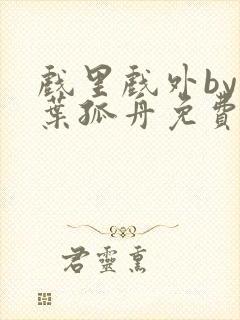 戲里戲外by
葉孤舟免費
君靈熏